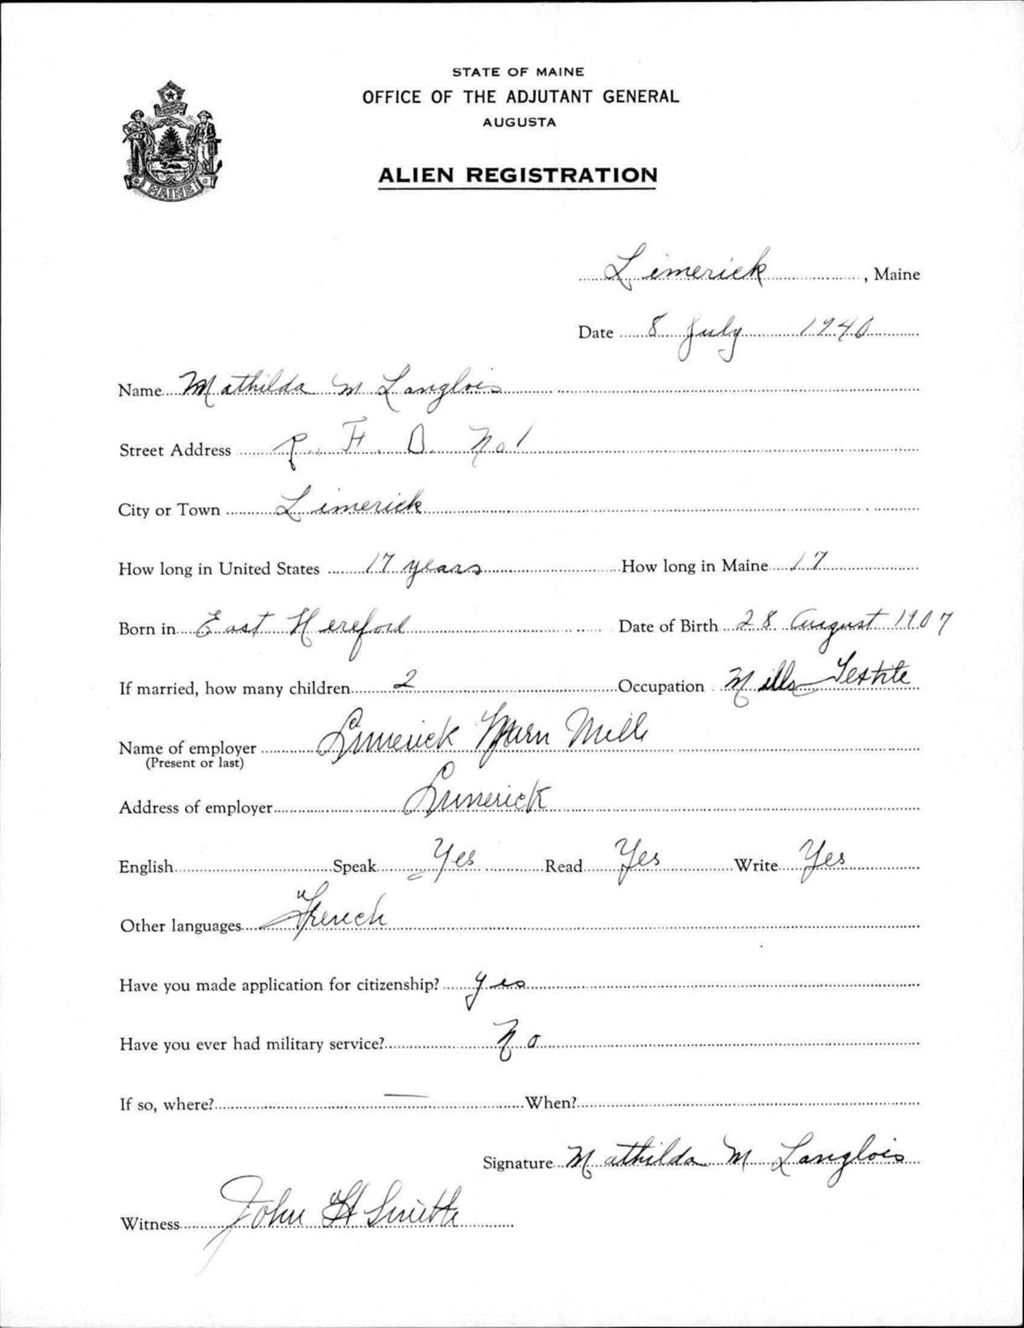 STATE OF MAINE
OFFICE OF THE ADJUTANT GENERAL
AUGUSTA
ALIEN REGISTRATION
MAINE
Limerick, Maine
Date 8 July 1940
Name Mathilda M Langlois
Street Address R. F. D. No 1
City or Town Limerick
How long in United States 17 years How long in Maine 17
Born in East Hereford Date of Birth 28 August 1907
If married, how many children 2 Occupation Mills Textile
Name of employer Limerick Yarn Mills
(Present or last)
Address of employer Limerick
English Speak Yes Read Yes Write Yes
Other languages French
Have you made application for citizenship? yes
Have you ever had military service? No
If so, where? — When?
Signature Mathilda M Langlois
Witness John H Smith